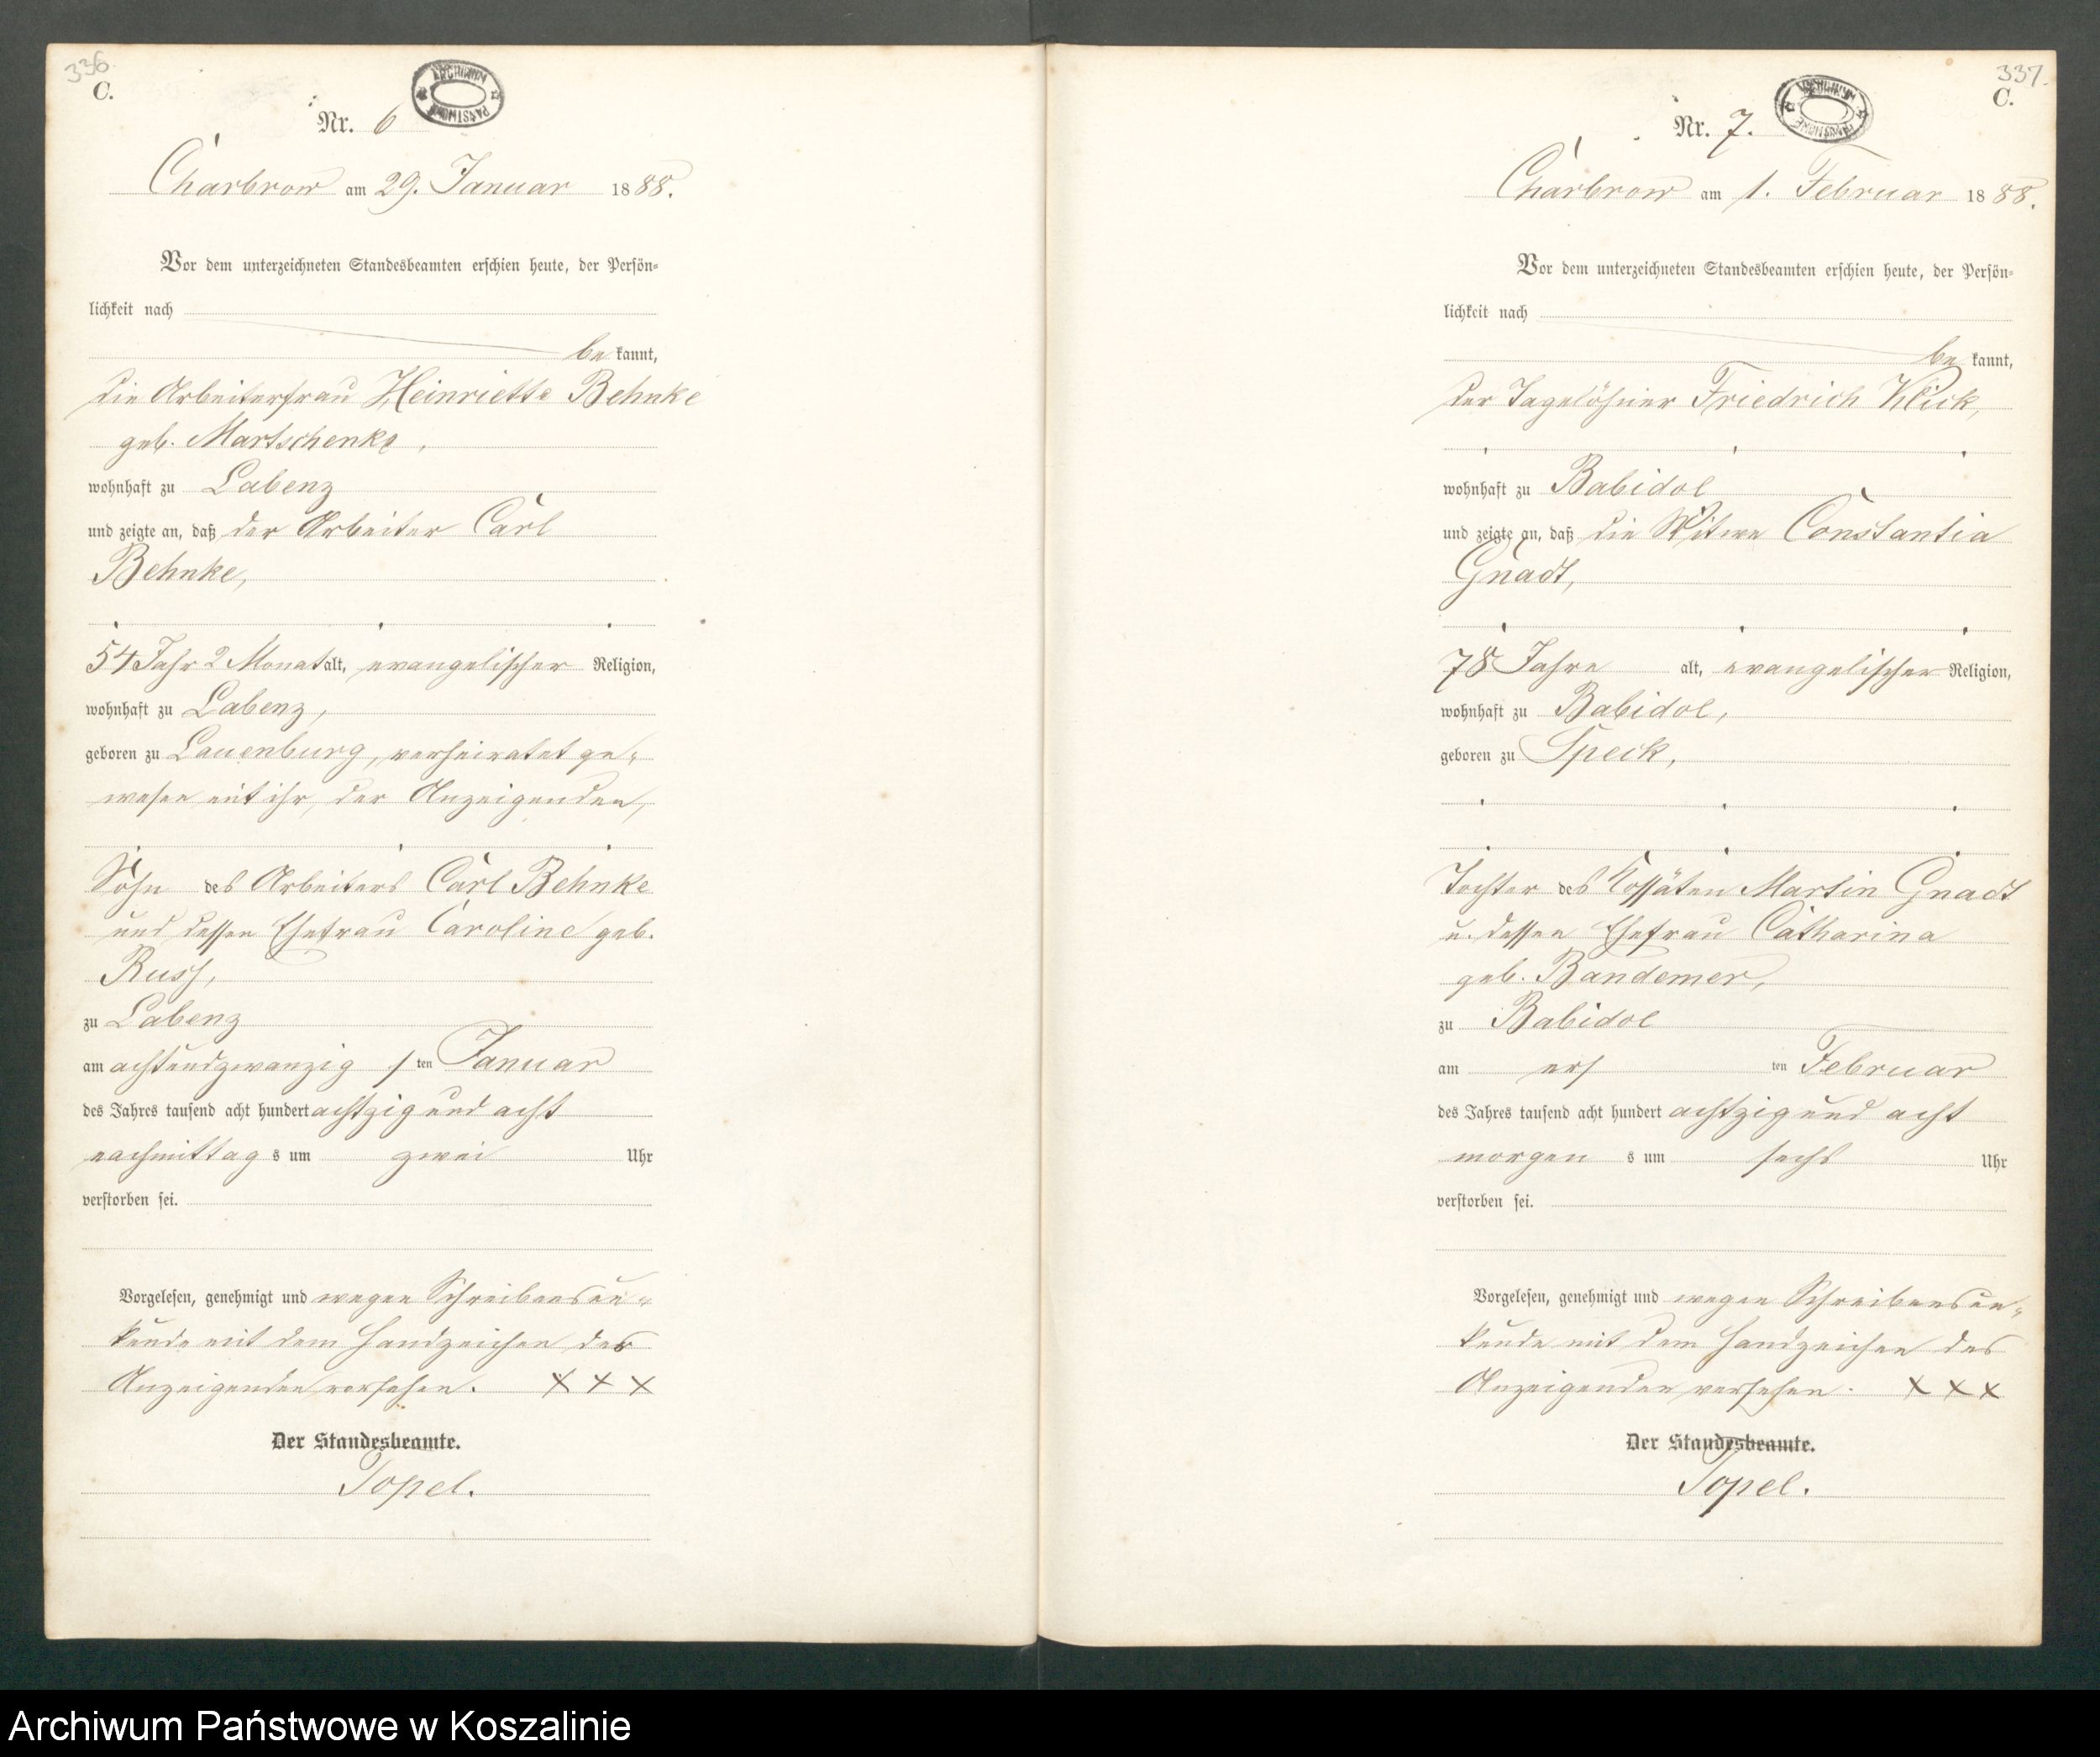 336
C.
ARCHIWUM PAŃSTWOWE
Nr. 6
Charbrow am 29. Januar 1888.
Vor dem unterzeichneten Standesbeamten erschien heute, der Persön-
lichkeit nach
bekannt,
die Arbeiterfrau Henriette Behnke
geb. Martschenke,
wohnhaft zu Labenz
und zeigte an, daß der Arbeiter Carl
Behnke,
54 Jahr 2 Monat alt, evangelischer Religion,
wohnhaft zu Labenz,
geboren zu Lauenburg, verheiratet ge-
wesen mit ihr, der Anzeigenden,
Sohn des Arbeiters Carl Behnke
und dessen Ehefrau Caroline geb.
Russ,
zu Labenz
am achtundzwanzig ten Januar
des Jahres tausend acht hundert achtzig und acht
nachmittag s um zwei Uhr
verstorben sei.
Vorgelesen, genehmigt und wegen Schreibensun-
kunde mit dem Handzeichen der
Anzeigenden versehen. X X X
Der Standesbeamte.
Topel.
337.
C.
ARCHIWUM PAŃSTWOWE
Nr. 7.
Charbrow am 1. Februar 1888.
Vor dem unterzeichneten Standesbeamten erschien heute, der Persön-
lichkeit nach
bekannt,
der Tagelöhner Friedrich Klick,
wohnhaft zu Babidol
und zeigte an, daß die Witwe Constantia
Gnadt,
78 Jahre alt, evangelischer Religion,
wohnhaft zu Babidol,
geboren zu Speck,
Tochter des Kossäten Martin Gnadt
u. dessen Ehefrau Catharina
geb. Bandemer,
zu Babidol
am ers ten Februar
des Jahres tausend acht hundert achtzig und acht
morgen s um sechs Uhr
verstorben sei.
Vorgelesen, genehmigt und wegen Schreibensun-
kunde mit dem Handzeichen des
Anzeigenden versehen. X X X
Der Standesbeamte.
Topel.
Archiwum Państwowe w Koszalinie